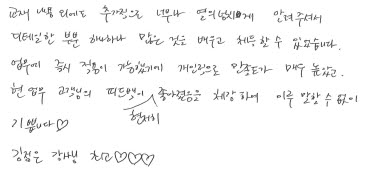 교재 내용 외에도 추가적으로 너무나 열의넘치게 알려주셔서
디테일한 부분 하나하나 많은 것을 배우고 체득할 수 있었습니다.
업무에 즉시 적용이 가능했기에 개인적으로 만족도가 매우 높았고.
현 업무 고객님의 피드백이 좋아졌음을 체감하여 이루 말할 수 없이
현저히
기쁩니다♡
김젊은 강사님 최고♡♡♡